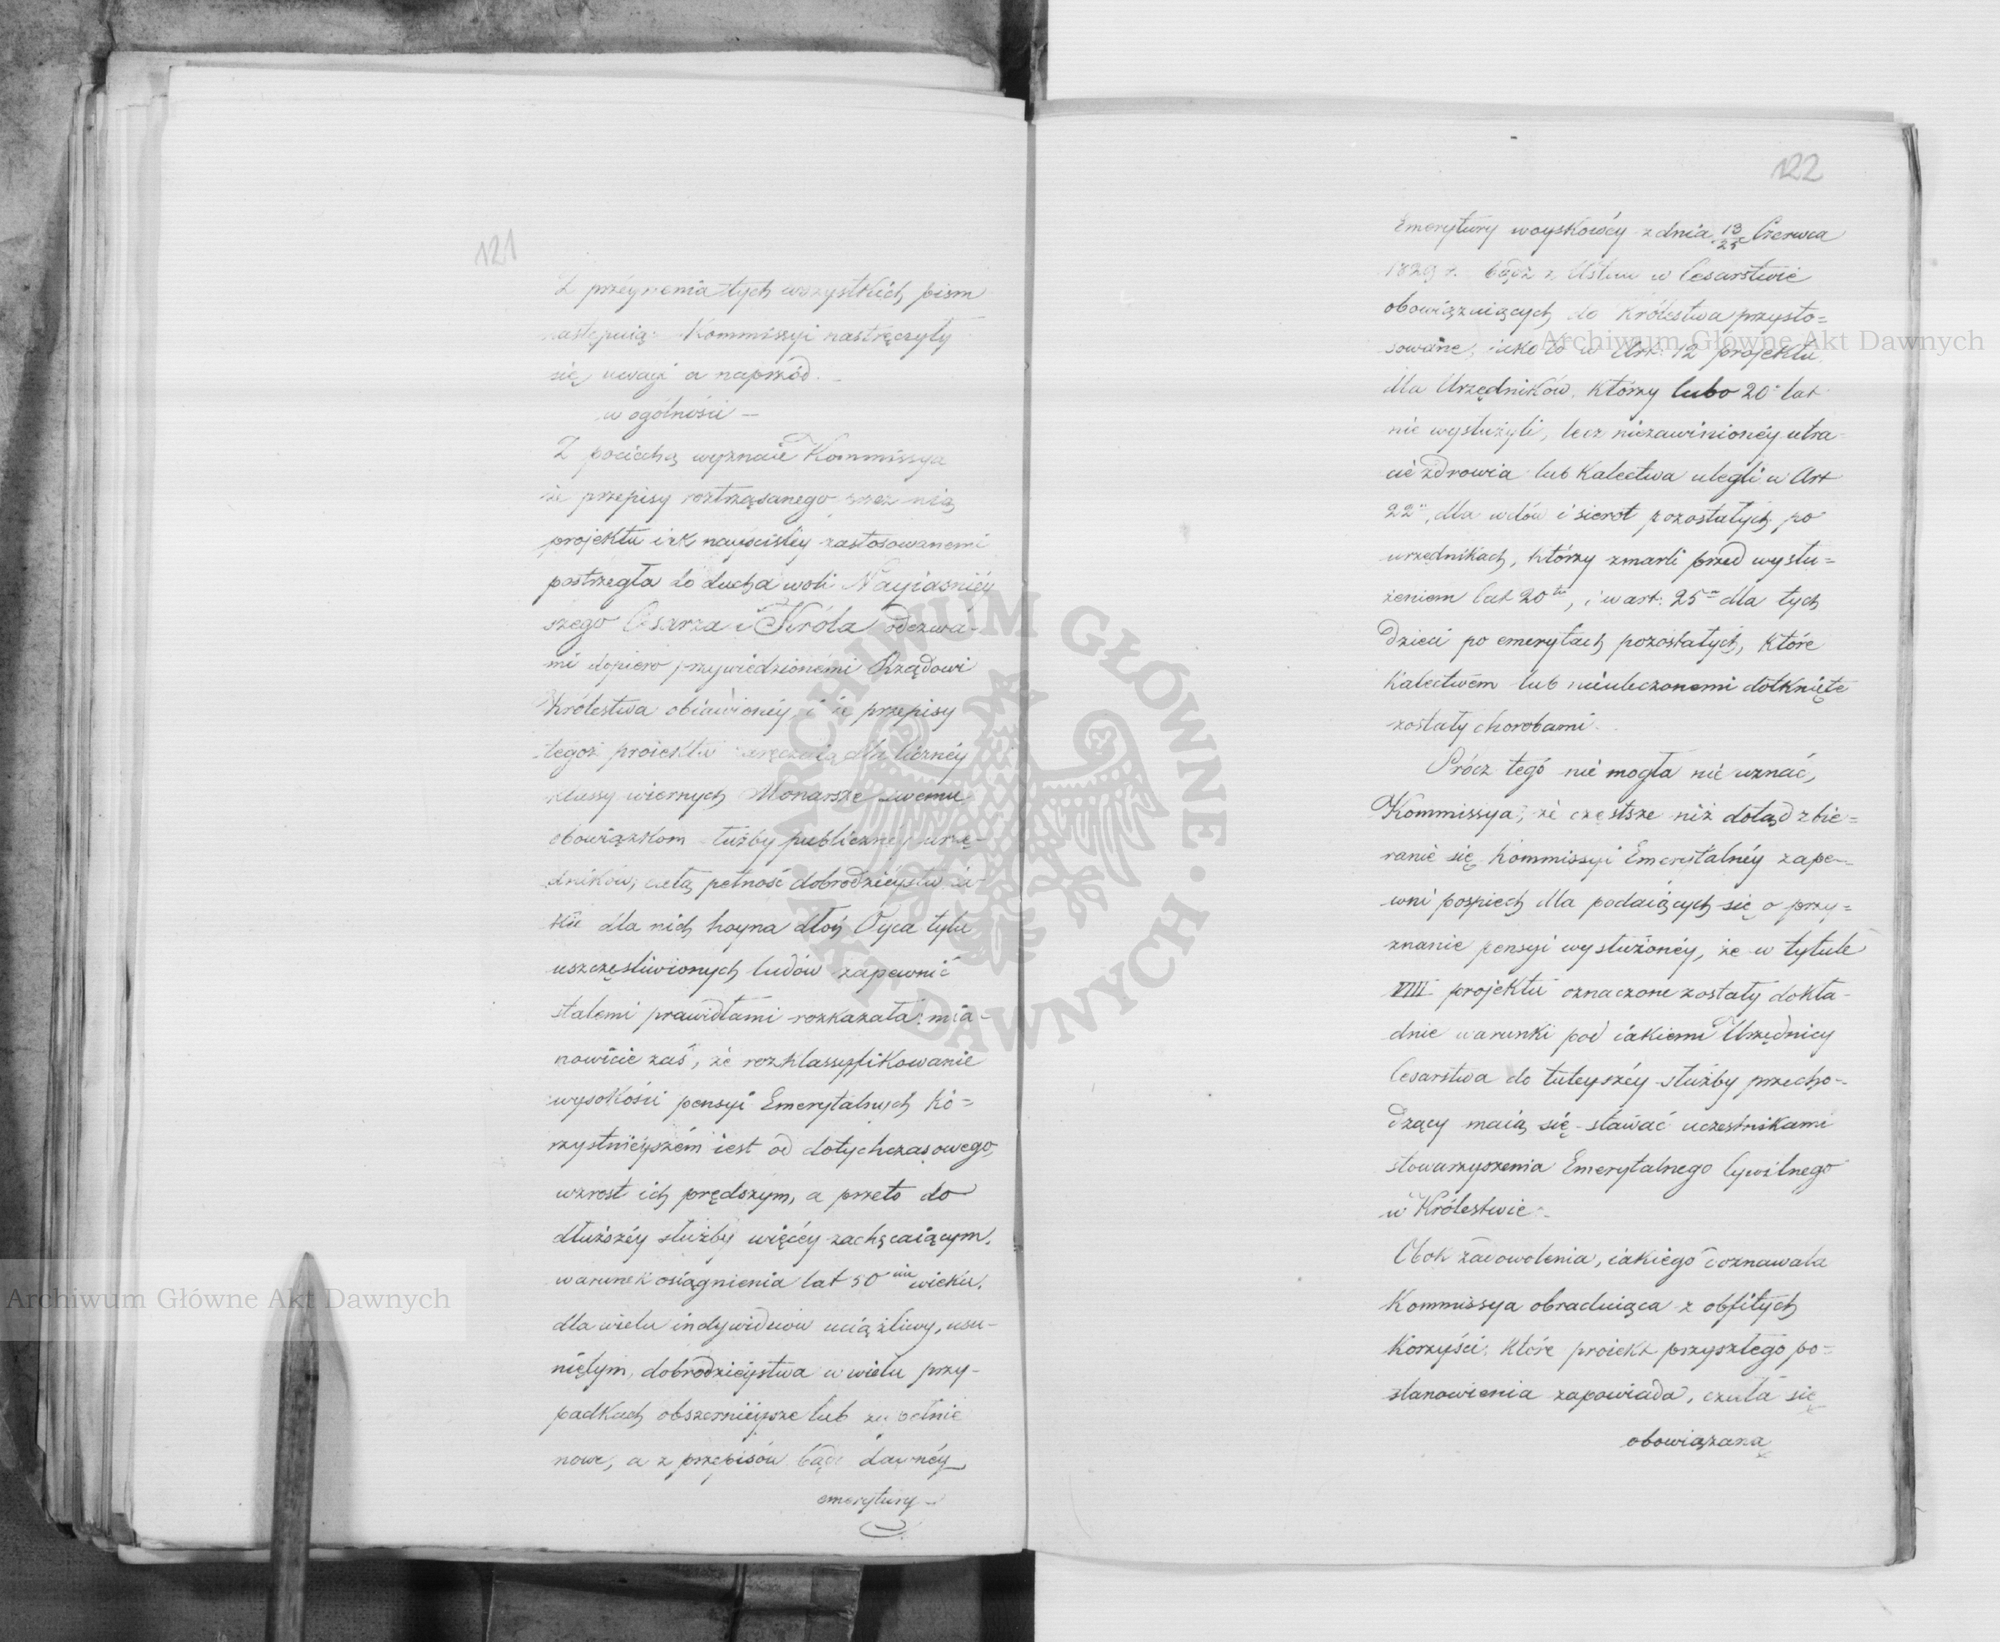 121
Z przeyrzenia tych wszystkich pism
następuią: Kommissyi nastręczyły
się uwagi a naprzód. –
w ogólności –
Z pociechą wyznaie Kommissya
że przepisy roztrząsanego przez nią
projektu iak nayściśley zastosowanemi
postrzegła do ducha woli Nayiaśniéy
szego Cesarza i Króla odezwa-
mi dopiero przywiedzionémi Rządowi
Królestwa obiawionéy, i że przepisy
tegoż proiektu zaręczaią dla liczney
klassy wiernych Monarsze swemu
obowiązkom służby publicznéy urzę-
dników, całą pełność dobrodzieystw ia-
kie dla nich hoyna dłoń Oyca tylu
uszczęśliwionych ludów zapewnić
stałemi prawidłami rozkazała; mia-
nowicie zaś, że rozklassyfikowanie
wysokości pensyi Emerytalnych ko=
rzystnieyszém iest od dotychczasowego,
wzrost ich prędszym, a przeto do
dłuższéy służby więcéy zachęcaiącym.
warunek osiągnienia lat 50 ciu wieku,
dla wielu indywiduów uciążliwy, usu-
niętym, dobrodzieystwa w wielu przy-
padkach obszernieysze lub zupełnie
nowe, a z przepisów bądź dawnéy
emerytury
122
Emerytury woyskowéy z dnia 13/25 Czerwca
1829 r. bądź z Ustaw w Cesarstwie
obowiązuiących do Królestwa przysto=
sowane, iako to w Art. 12 projektu
dla Urzędników, którzy lubo 20 lat
nie wysłużyli, lecz niezawinionéy utra-
cie zdrowia lub kalectwa ulegli w Art
22", dla wdów i sierot pozostałych po
urzędnikach, którzy zmarli przed wysłu=
żeniem lat 20tu, i w art. 25m dla tych
dzieci po emerytach pozostałych, które
kalectwem lub nieuleczonemi dotknięte
zostały chorobami.
Prócz tego nie mogła nie uznać,
Kommissya, że częstsze niż dotąd zbie=
ranie się Kommissyi Emerytalnéy zape-
wni pospiech dla podaiących się o przy=
znanie pensyi wysłużonéy, że w tytule
VIII projektu oznaczone zostały dokła-
dnie warunki pod iakiemi Urzędnicy
Cesarstwa do tuteyszéy służby przecho-
dzący maią się stawać uczestnikami
stowarzyszenia Emerytalnego Cywilnego
w Królestwie.
Obok zadowolenia, iakiego doznawała
Kommissya obraduiąca z obfitych
korzyści, które proiekt przyszłego po=
stanowienia zapowiada, czuła się
obowiązaną
Archiwum Główne Akt Dawnych
Archiwum Główne Akt Dawnych
ARCHIWUM GŁÓWNE · AKT DAWNYCH ·